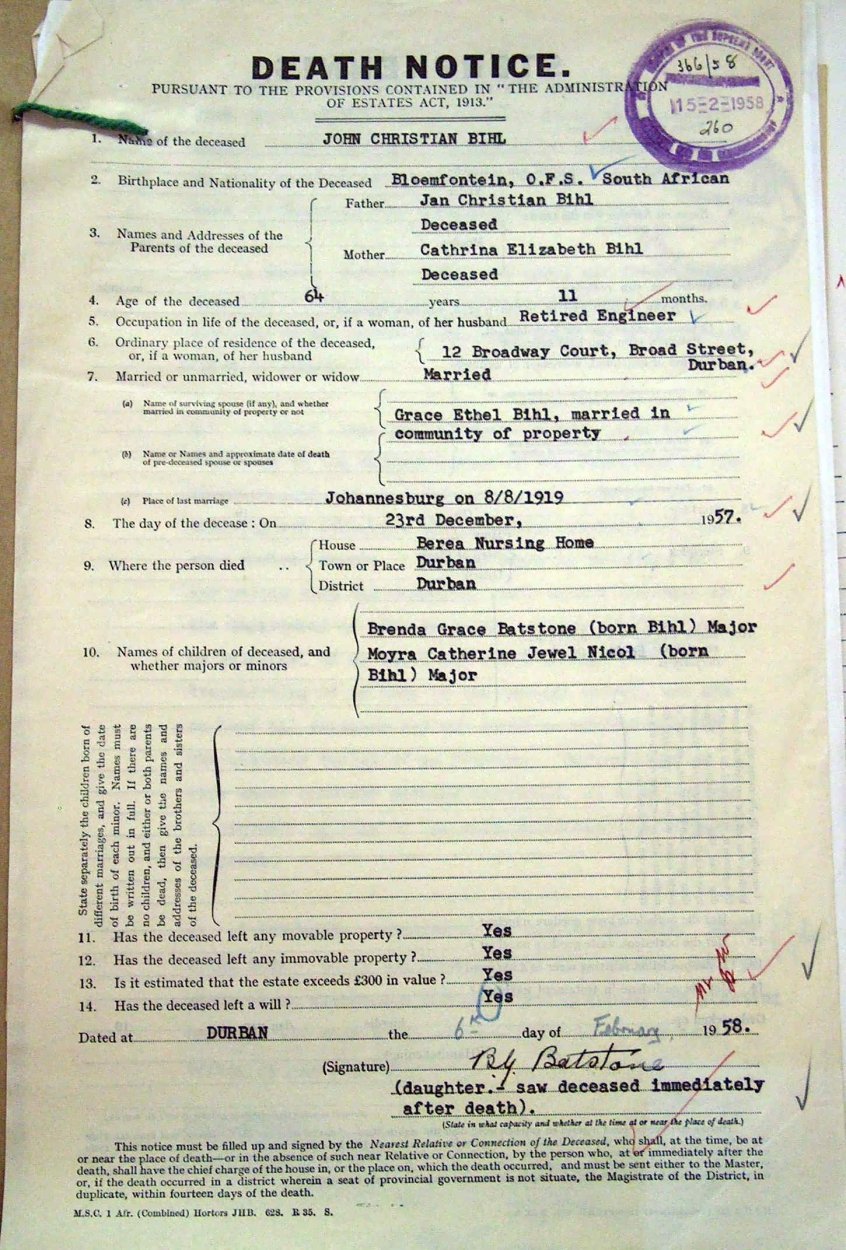 DEATH NOTICE.
PURSUANT TO THE PROVISIONS CONTAINED IN "THE ADMINISTRATION
OF ESTATES ACT, 1913."
366/58
15-2-1958
260
1. Name of the deceased JOHN CHRISTIAN BIHL
2. Birthplace and Nationality of the Deceased Bloemfontein, O.F.S. South African
3. Names and Addresses of the Parents of the deceased
Father Jan Christian Bihl
Deceased
Mother Cathrina Elizabeth Bihl
Deceased
4. Age of the deceased 64 years 11 months.
5. Occupation in life of the deceased, or, if a woman, of her husband Retired Engineer
6. Ordinary place of residence of the deceased,
or, if a woman, of her husband
12 Broadway Court, Broad Street,
Durban.
7. Married or unmarried, widower or widow Married
(a) Name of surviving spouse (if any), and whether
married in community of property or not
Grace Ethel Bihl, married in
community of property
(b) Name or Names and approximate date of death
of pre-deceased spouse or spouses
(c) Place of last marriage Johannesburg on 8/8/1919
8. The day of the decease : On 23rd December, 1957.
9. Where the person died ..
House Berea Nursing Home
Town or Place Durban
District Durban
10. Names of children of deceased, and
whether majors or minors
Brenda Grace Batstone (born Bihl) Major
Moyra Catherine Jewel Nicol (born
Bihl) Major
State separately the children born of
different marriages, and give the date
of birth of each minor. Names must
be written out in full. If there are
no children, and either or both parents
be dead, then give the names and
addresses of the brothers and sisters
of the deceased.
11. Has the deceased left any movable property ? Yes
12. Has the deceased left any immovable property ? Yes
13. Is it estimated that the estate exceeds £300 in value ? Yes
14. Has the deceased left a will ? Yes
Dated at DURBAN the 6th day of February, 1958.
(Signature) B.G. Batstone
(daughter.- saw deceased immediately
after death).
(State in what capacity and whether at the time at or near the place of death.)
This notice must be filled up and signed by the Nearest Relative or Connection of the Deceased, who shall, at the time, be at
or near the place of death—or in the absence of such near Relative or Connection, by the person who, at or immediately after the
death, shall have the chief charge of the house in, or the place on, which the death occurred, and must be sent either to the Master,
or, if the death occurred in a district wherein a seat of provincial government is not situate, the Magistrate of the District, in
duplicate, within fourteen days of the death.
M.S.C. 1 Afr. (Combined) Hortors JHB. 628. R 35. S.